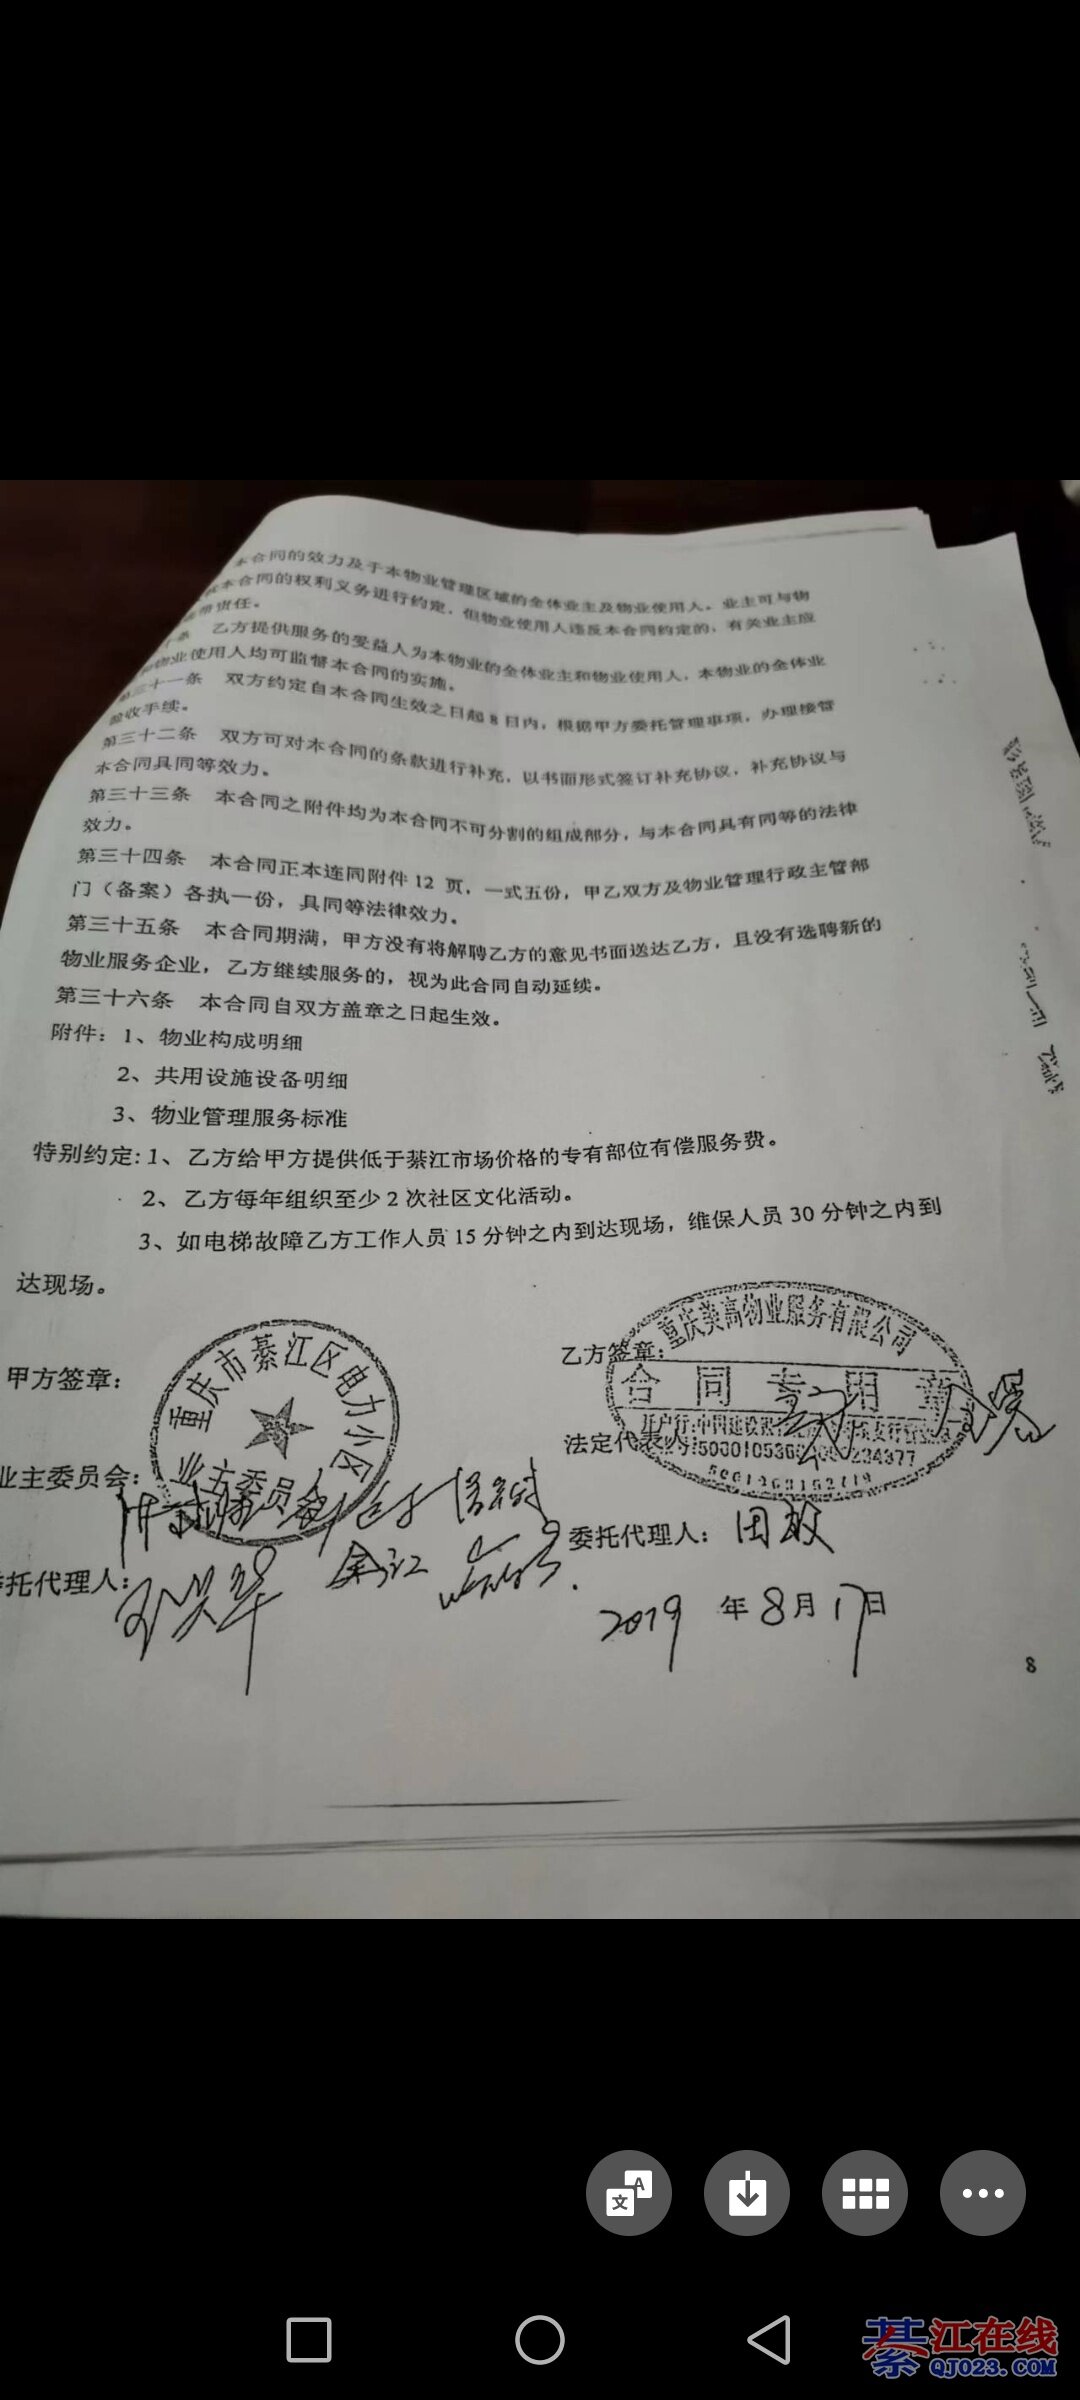 本合同的效力及于本物业管理区域的全体业主及物业使用人。业主可与物
本合同的权利义务进行约定，但物业使用人违反本合同约定的，有关业主应
责任。
乙方提供服务的受益人为本物业的全体业主和物业使用人，本物业的全体业
物业使用人均可监督本合同的实施。
第三十一条 双方约定自本合同生效之日起8日内，根据甲方委托管理事项，办理接管
验收手续。
第三十二条 双方可对本合同的条款进行补充，以书面形式签订补充协议，补充协议与
本合同具同等效力。
第三十三条 本合同之附件均为本合同不可分割的组成部分，与本合同具有同等的法律
效力。
第三十四条 本合同正本连同附件12 页，一式五份，甲乙双方及物业管理行政主管部
门（备案）各执一份，具同等法律效力。
第三十五条 本合同期满，甲方没有将解聘乙方的意见书面送达乙方，且没有选聘新的
物业服务企业，乙方继续服务的，视为此合同自动延续。
第三十六条 本合同自双方盖章之日起生效。
附件：1、物业构成明细
2、共用设施设备明细
3、物业管理服务标准
特别约定：1、乙方给甲方提供低于綦江市场价格的专有部位有偿服务费。
2、乙方每年组织至少2次社区文化活动。
3、如电梯故障乙方工作人员15分钟之内到达现场，维保人员30分钟之内到
达现场。
甲方签章：
重庆市綦江区电力小区
业主委员会
乙方签章：
重庆美高物业服务有限公司
合同专用章
法定代表人
业主委员会：
委托代理人：田敏
托代理人：
2019年8月17日
8
綦江在线
QJ023.COM